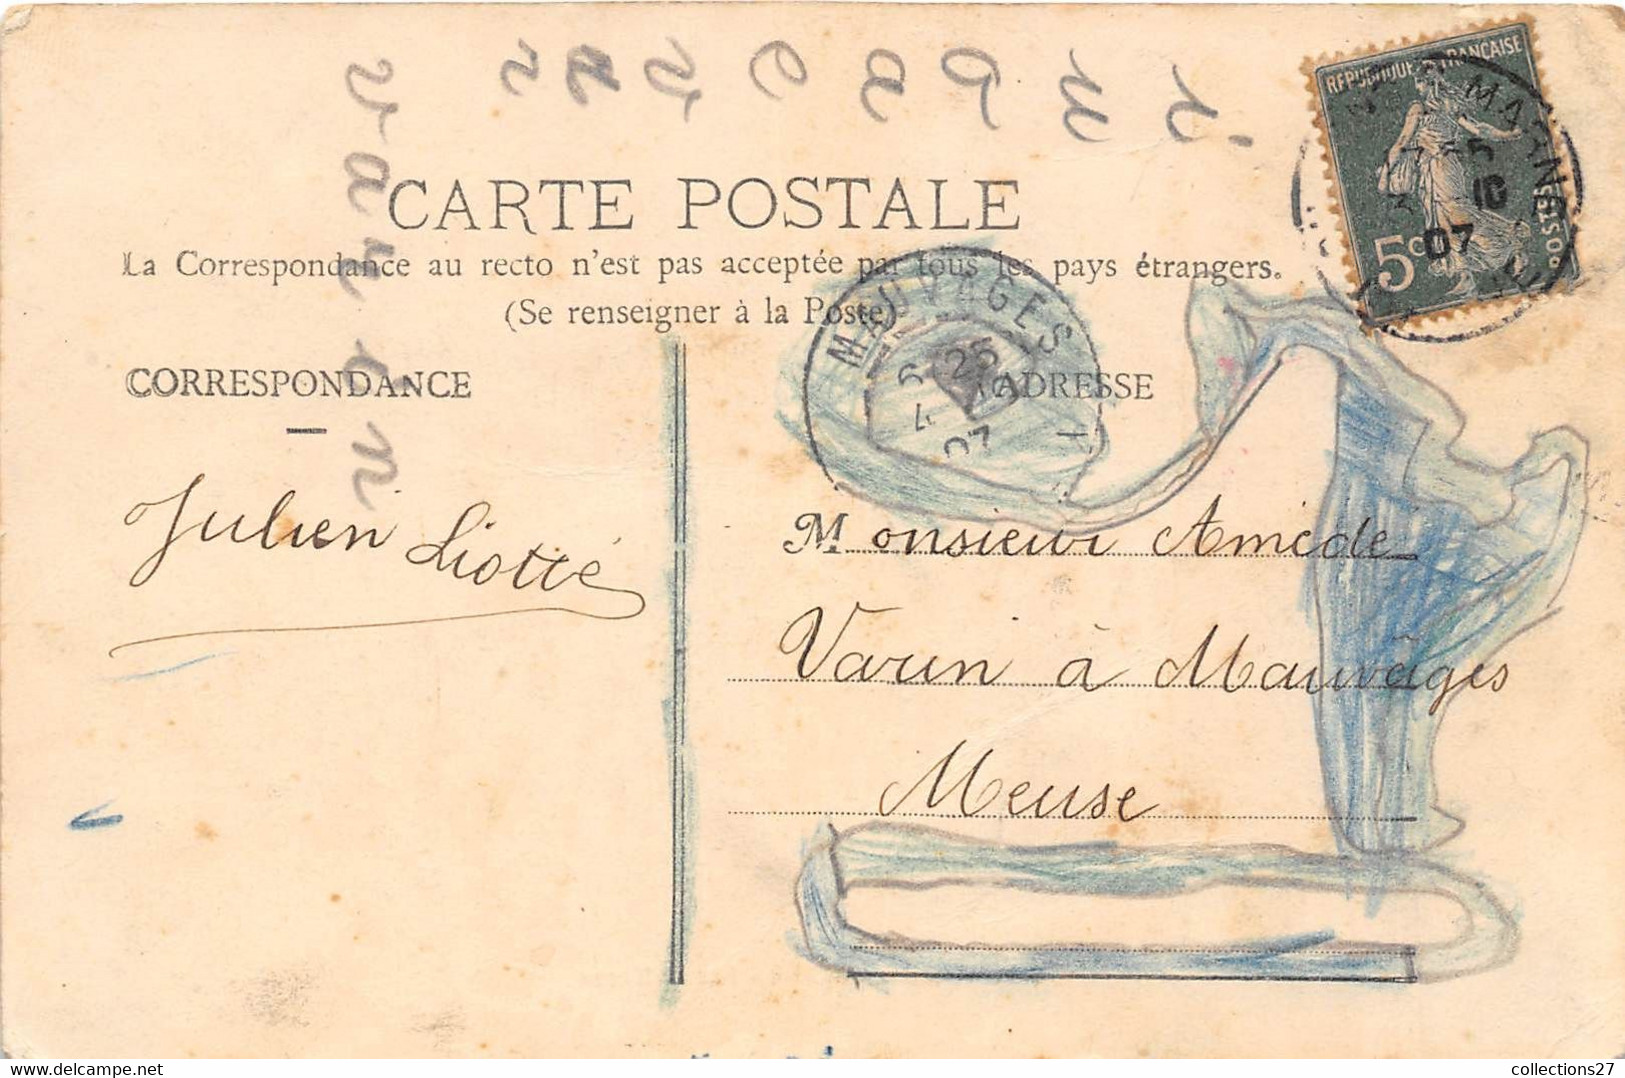 RÉPUBLIQUE FRANÇAISE
POSTES
5c
MARNE
5
10
07
CARTE POSTALE
La Correspondance au recto n'est pas acceptée par tous les pays étrangers.
(Se renseigner à la Poste)
MAUVAGES
6 25
4 10
07
CORRESPONDANCE
ADRESSE
Julien Liotté
Monsieur Amédé
Varin à Mauvages
Meuse
collections27